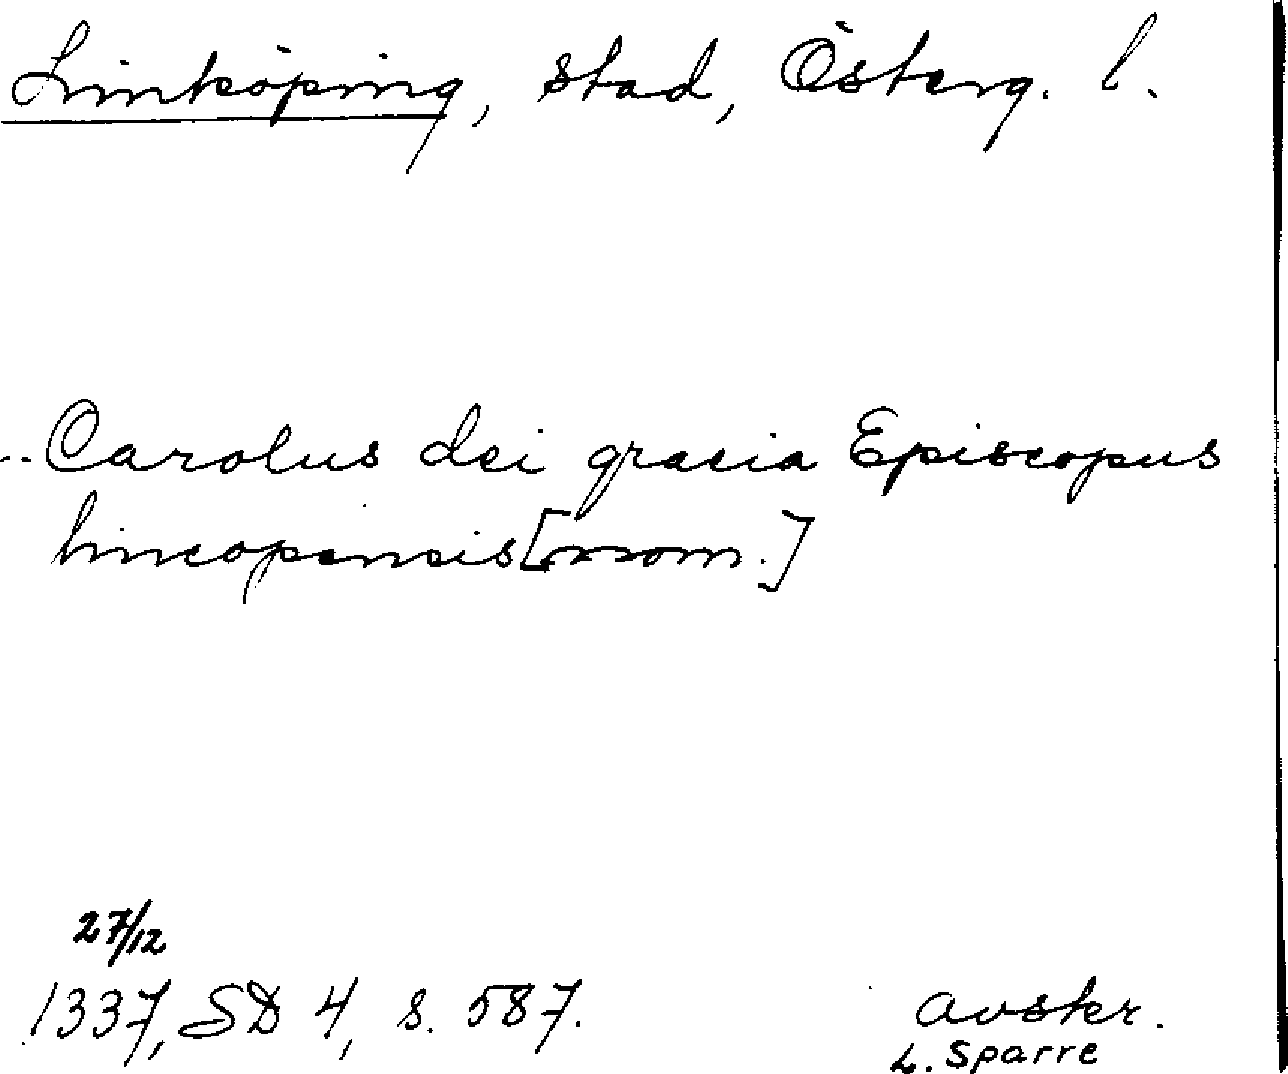 Linköping, stad, Österg. l.
..Carolus dei gracia Episcopus
lincopensis [nom.]
27/12
1337, SD 4, s. 587.
avskr.
L. Sparre